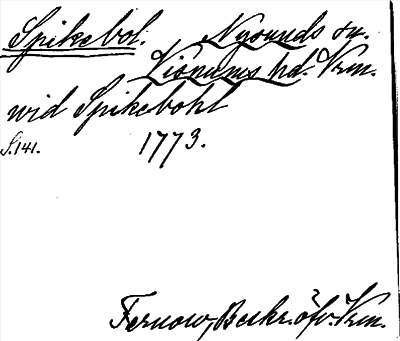 Spikebol. Nysunds sn.
Visnums hd. Vrm.
wid Spikebohl
S.141. 1773.
Fernow, Beskr. öfv. Vrm.